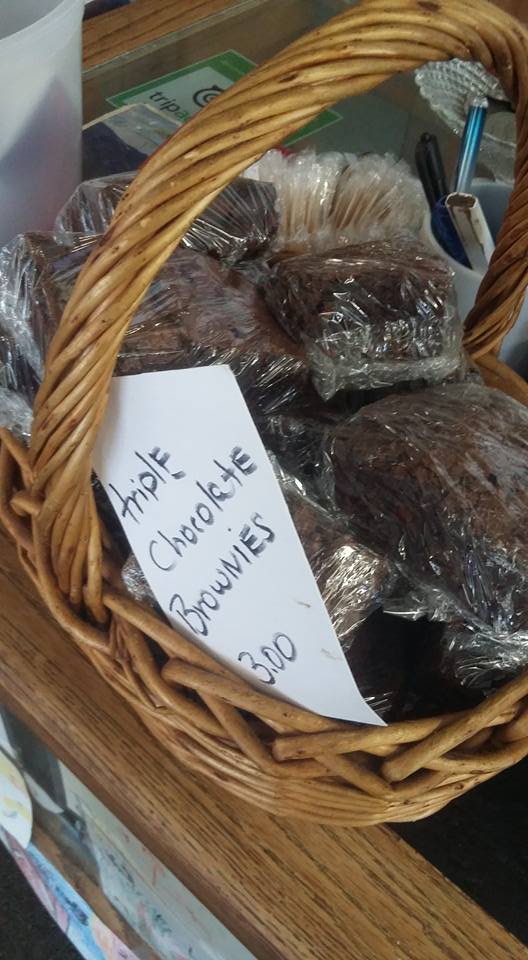 tripa
triple
Chocolate
Brownies
3.00